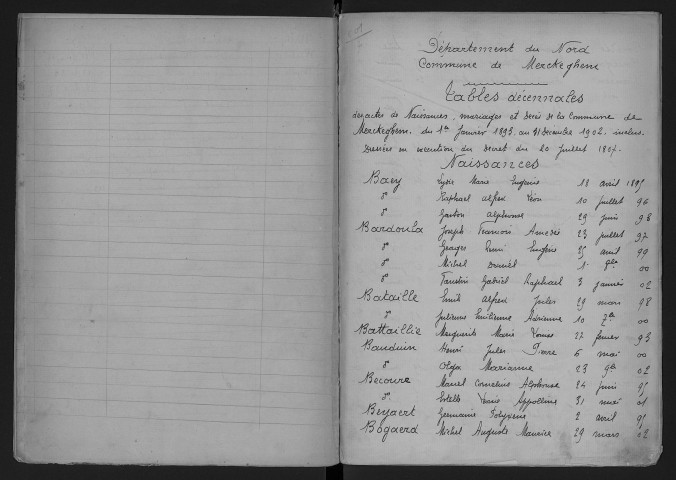 Département du Nord
Commune de Merckeghem
Tables décennales
des actes de Naissances, mariages et Décès de la Commune de
Merckeghem, du 1er Janvier 1893, au 31 Décembre 1902, inclus.
Dressées en exécution du Décret du 20 Juillet 1807.
Naissances
Baey Lydie Marie Eugénie 18 avril 1895
do Raphael alfred Léon 10 juillet 96
do Gaston alphonse 29 juin 98
Bardoula Joseph François Amédée 23 juillet 97
do Georges Remi Eugène 25 avril 99
do Michel 1er 9bre 00
do Gabriel Raphael 3 janvier 02
Bataille Emile Alfred Jules 29 mars 98
do Julienne Emilienne Adrienne 10 7bre 00
Battaillie Marguerite Marie 27 février 93
Bauduin Henri Jules Pierre 6 mai 00
do Olga Marianne 23 9bre 02
Becoure Marcel Cornelius Alphonse 24 juin 95
do Estelle Marie Appolline 31 mai 01
Beyaert Germaine 2 avril 95
Bogaerd Michel Auguste Maurice 29 mars 02